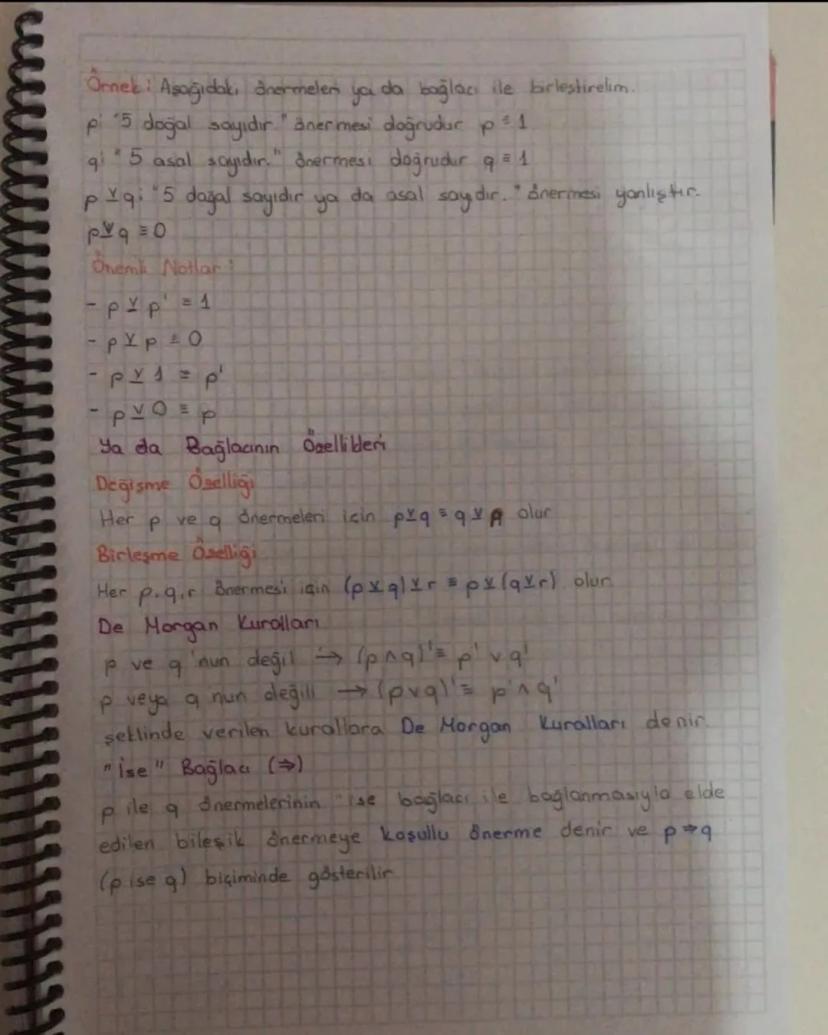 Örnek: Aşağıdaki önermeleri ya da bağlacı ile birleştirelim.
p: "5 doğal sayıdır." önermesi doğrudur p ≡ 1
q: "5 asal sayıdır." önermesi doğrudur q ≡ 1
p ⊻ q: "5 doğal sayıdır ya da asal sayıdır." önermesi yanlıştır.
p ⊻ q ≡ 0
Önemli Notlar:
- p ⊻ p' ≡ 1
- p ⊻ p ≡ 0
- p ⊻ 1 ≡ p'
- p ⊻ 0 ≡ p
Ya da Bağlacının Özellikleri
Değişme Özelliği
Her p ve q önermeleri için p ⊻ q ≡ q ⊻ p olur
Birleşme Özelliği
Her p.q.r önermesi için (p ⊻ q) ⊻ r ≡ p ⊻ (q ⊻ r) olur.
De Morgan Kuralları
p ve q'nun değil → (p ∧ q)' ≡ p' ∨ q'
p veya q nun değili → (p ∨ q)' ≡ p' ∧ q'
şeklinde verilen kurallara De Morgan Kuralları denir.
"ise" Bağlacı (⇒)
p ile q önermelerinin "ise bağlacı ile bağlanmasıyla elde
edilen bileşik önermeye koşullu önerme denir ve p ⇒ q
(p ise q) biçiminde gösterilir